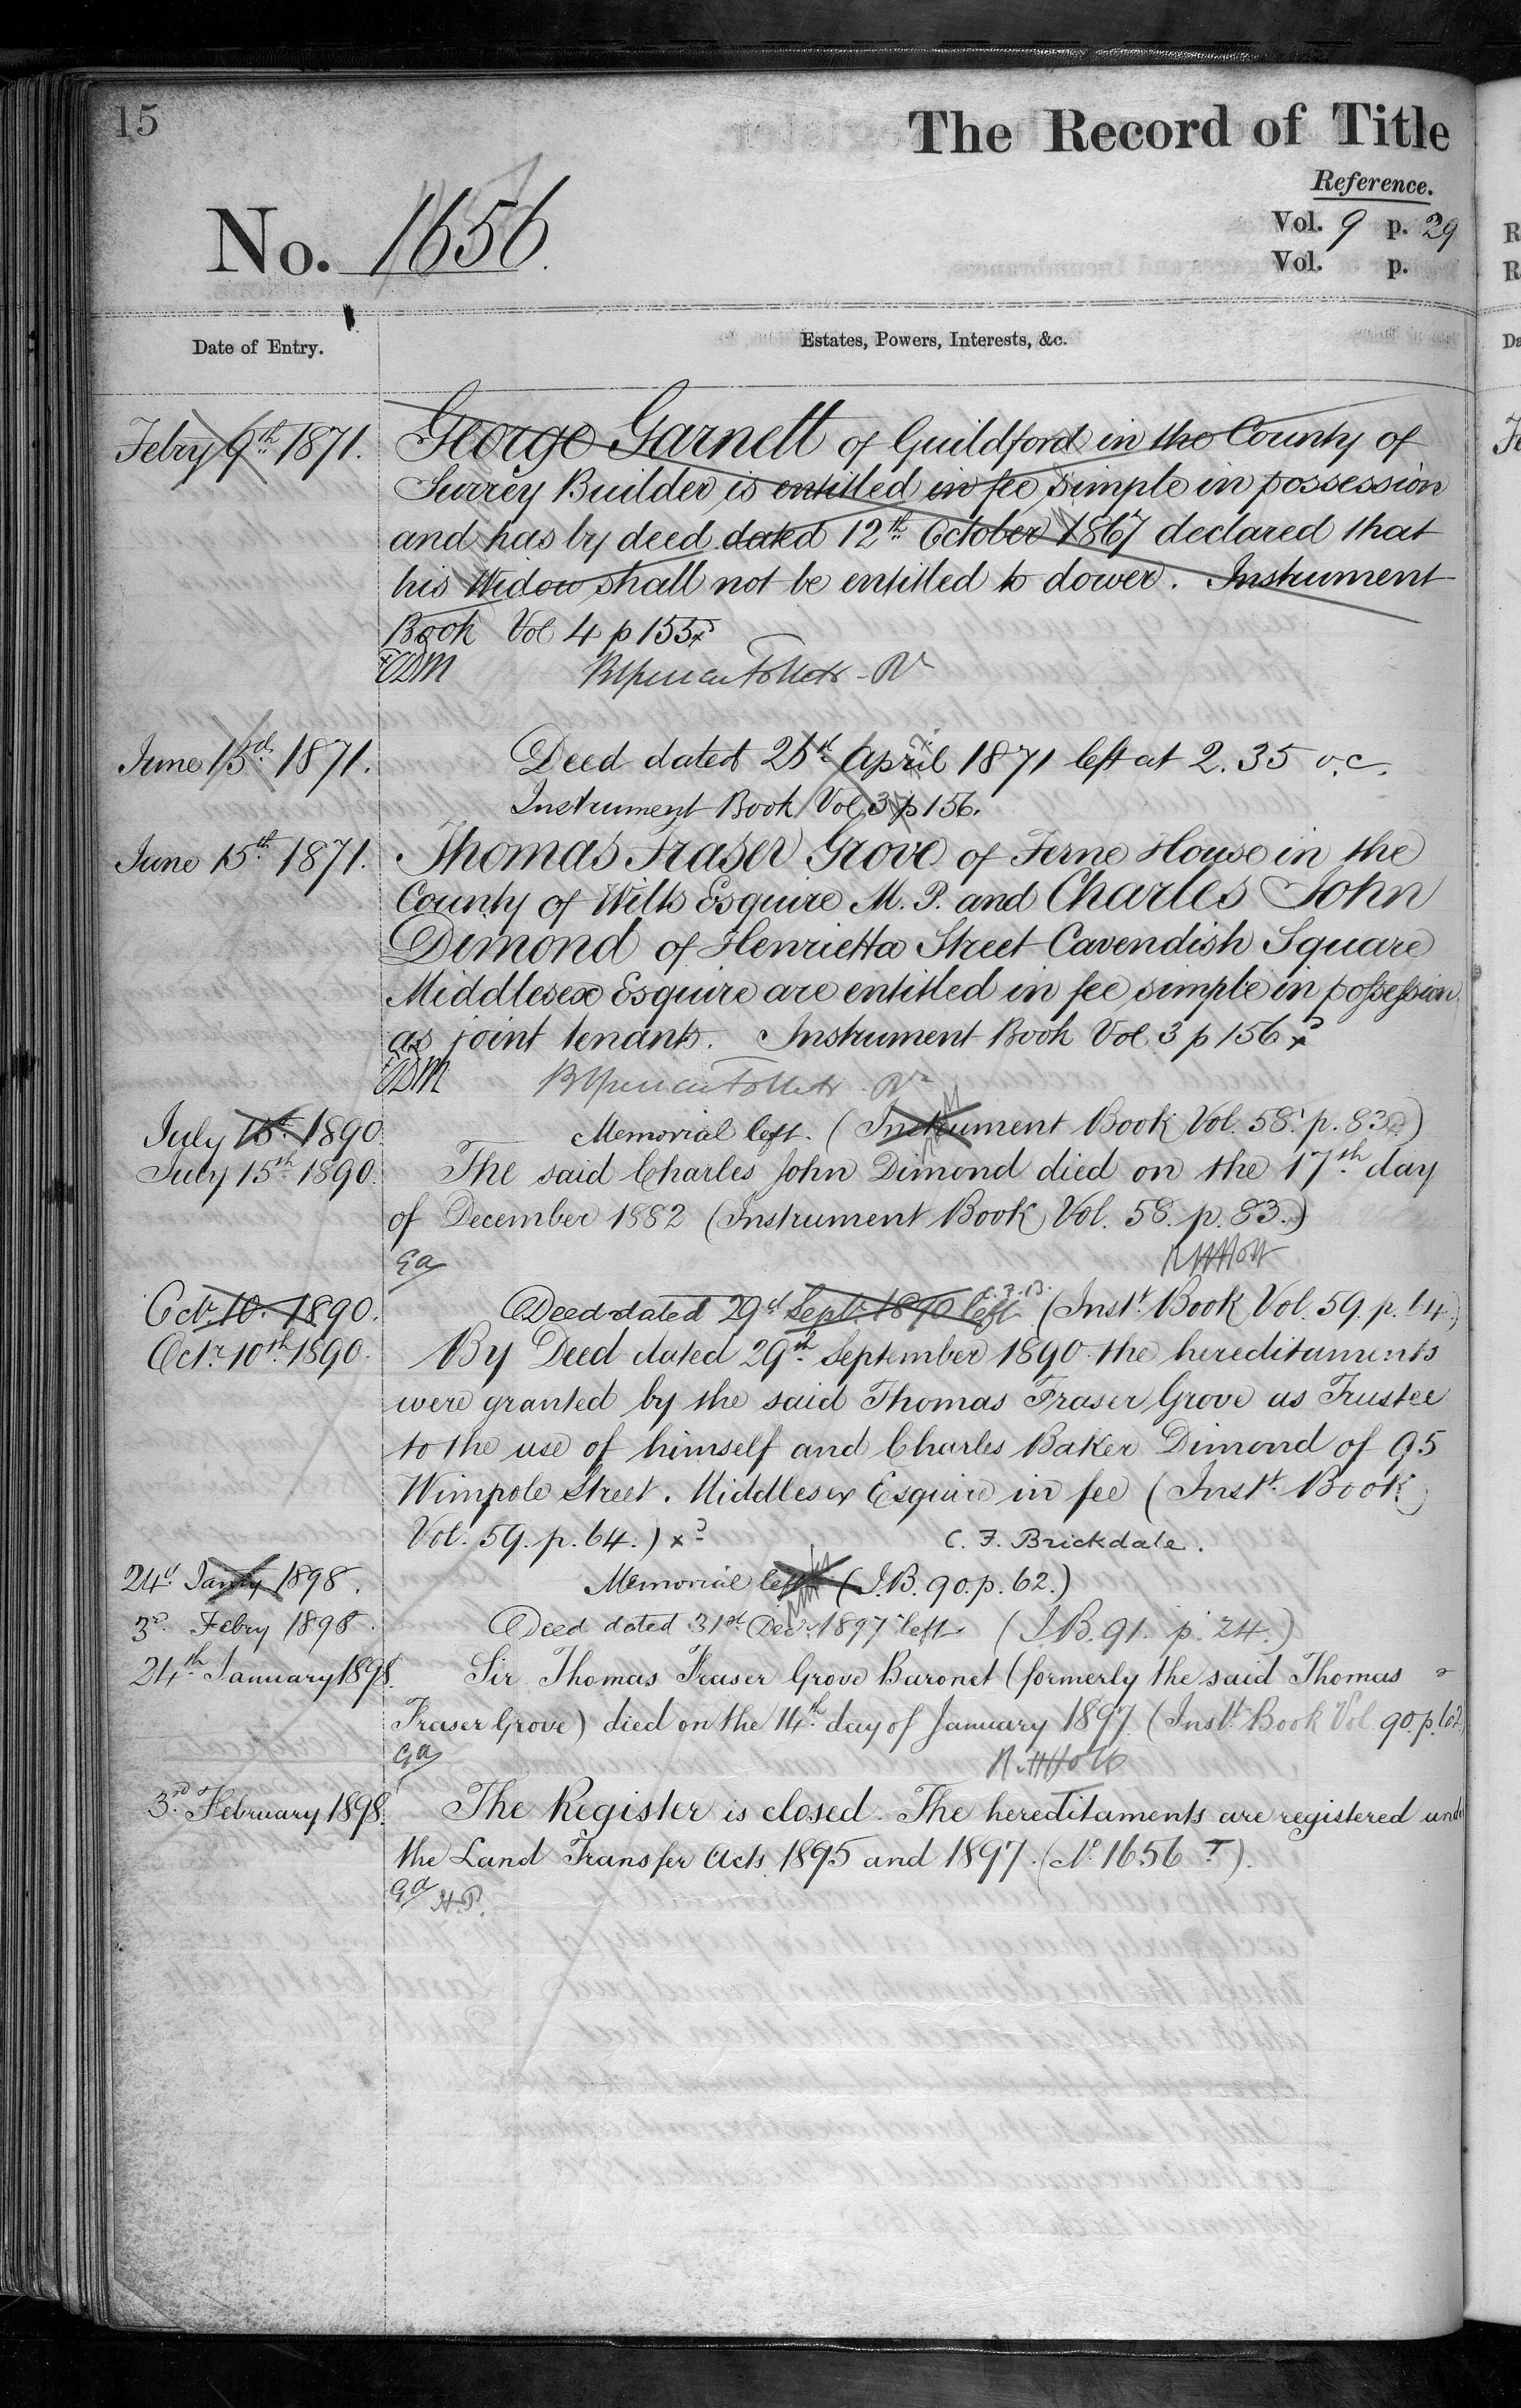 15
The Record of Title
Reference.
No. 1656.
Vol. 9 p. 29
Vol. p.
Date of Entry.
Estates, Powers, Interests, &c.
Febry 9th 1871. George Garnett of Guildford in the County of
Surrey Builder is entitled in fee simple in possession
and has by deed dated 12th October 1867 declared that
his Widow shall not be entitled to dower. Instrument
Book Vol 4 p 155
June 1871. Deed dated April 1871 left at 2.35 o.c.
Instrument Book Vol 3 p 156.
June 15th 1871. Thomas Fraser Grove of Ferne House in the
County of Wilts Esquire M. P. and Charles John
Dimond of Henrietta Street Cavendish Square
Middlesex Esquire are entitled in fee simple in possession
as joint tenants. Instrument Book Vol 3 p 156
July 15th 1890. Memorial left. (Instrument Book Vol. 58. p. 83.)
July 15th 1890. The said Charles John Dimond died on the 17th day
of December 1882 (Instrument Book Vol. 58. p. 83.)
Octr. 10. 1890. Deed dated 29th Septr. 1890 left (Inst. Book Vol. 59. p. 64.)
Octr. 10th 1890. By Deed dated 29th September 1890 the hereditaments
were granted by the said Thomas Fraser Grove as Trustee
to the use of himself and Charles Baker Dimond of 95
Wimpole Street. Middlesex Esquire in fee (Inst. Book
Vol. 59. p. 64.) C. F. Brickdale.
24th Janry 1898. Memorial left (I.B. 90. p. 62.)
3rd Febry 1898. Deed dated 31st Decr. 1897 left (I.B. 91. p. 24.)
24th January 1898. Sir Thomas Fraser Grove Baronet (formerly the said Thomas
Fraser Grove) died on the 14th day of January 1897 (Inst. Book Vol. 90. p. 62)
3rd February 1898. The Register is closed. The hereditaments are registered und
the Land Transfer Acts 1895 and 1897. (No 1656 T).
H.P.